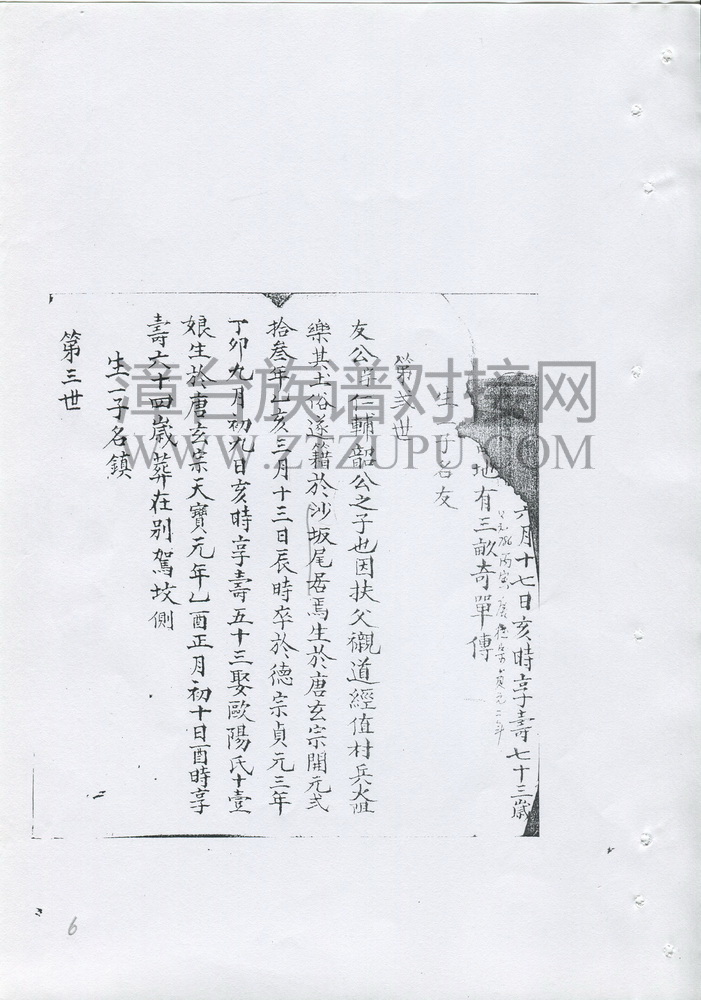 六月十七日亥時享壽七十三歲
公元786丙寅 唐德宗貞元二年
地有三畝奇單傳
生一子名友
第弍世
友公諱仁輔韶公之子也因扶父櫬道經值村兵火阻
樂其土俗遂籍於沙坂尾居焉生於唐玄宗開元弍
拾叁年乙亥三月十三日辰時卒於德宗貞元三年
丁卯九月初九日亥時享壽五十三娶歐陽氏十壹
娘生於唐玄宗天寶元年乙酉正月初十日酉時享
壽六十四歲葬在別駕坟側
生一子名鎮
第三世
漳台族谱对接网
WWW.ZTZUPU.COM
6